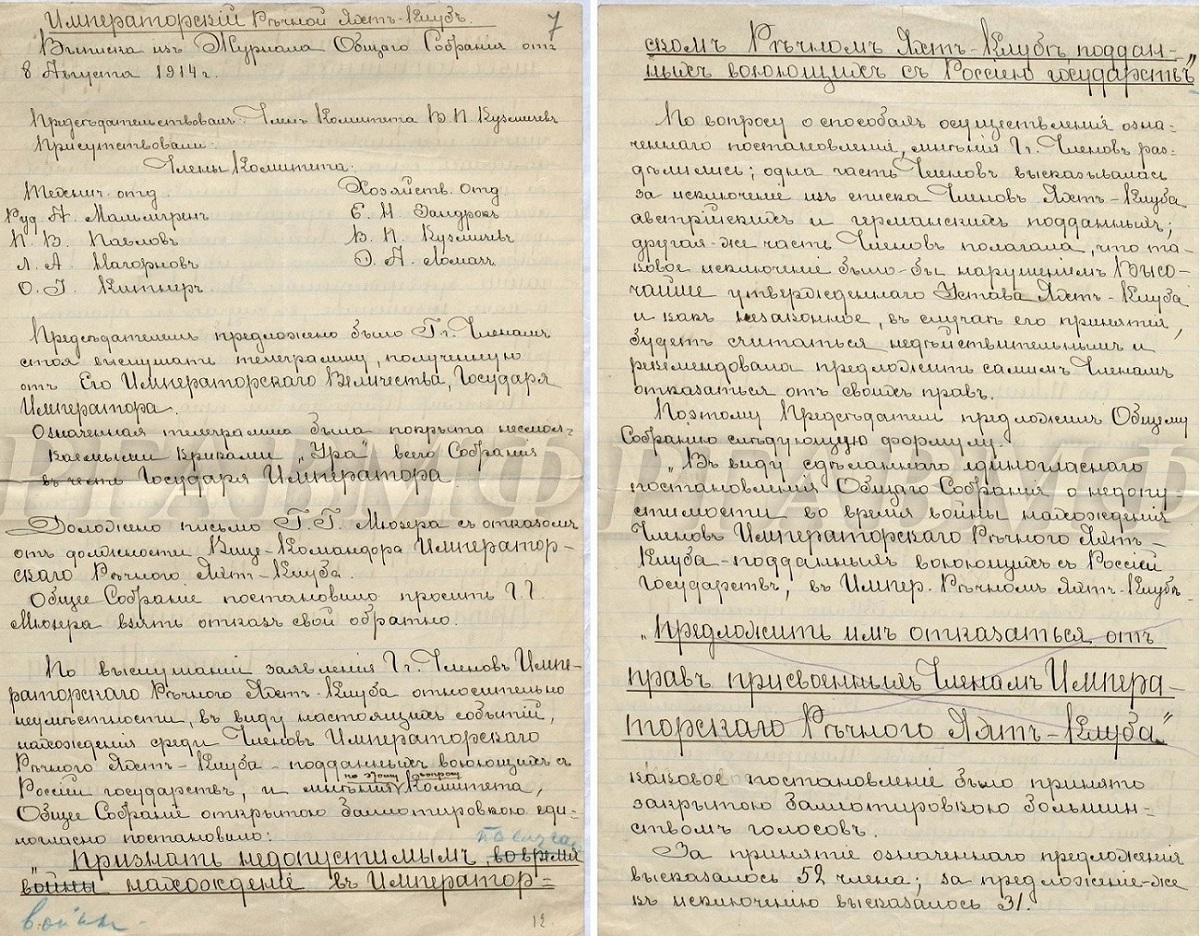 Императорскій Рѣчной Яхтъ-Клубъ.
7
Выписка изъ Журнала Общаго Собранія отъ
8 Августа 1914 г.
Предсѣдательствовалъ: Членъ Комитета В. П. Кузмичевъ
Присутствовали:
Члены Комитета:
Технич. отд.
Хозяйств. отд.
Руд. А. Мальмгренъ
Е. И. Зандрокъ
П. В. Павловъ
В. П. Кузмичевъ
Л. А. Нагорновъ
Э. А. Ломачъ
О. Г. Китнеръ
Предсѣдателемъ предложено было Гг. Членамъ
стоя выслушать телеграмму, полученную
отъ Его Императорскаго Величества, Государя
Императора.
Означенная телеграмма была покрыта несмол-
каемыми криками „Ура" всего Собранія
въ честь Государя Императора
Доложено письмо Г. Г. Мюзера съ отказомъ
отъ должности Вице-Командора Император-
скаго Рѣчного Яхтъ-Клуба.
Общее Собраніе постановило просить Г. Г.
Мюзера взять отказъ свой обратно.
По выслушаніи заявленія Гг. Членовъ Импе-
раторскаго Рѣчного Яхтъ-Клуба относительно
неумѣстности, въ виду настоящихъ событій,
нахожденія среди Членовъ Императорскаго
Рѣчного Яхтъ-Клуба - подданныхъ воюющихъ съ
по этому вопросу
Россіей государствъ, и мнѣнія Комитета,
Общее Собраніе открытою баллотировкою еди-
ногласно постановило:
по случаю
„Признать недопустимымъ во время
войны нахожденіе въ Император=
войны
12
скомъ Рѣчномъ Яхтъ-Клубѣ поддан-
ныхъ воюющихъ съ Россіею государствъ"
По вопросу о способахъ осуществленія озна-
ченнаго постановленія, мнѣнія Гг. Членовъ раз-
дѣлились; одна часть Членовъ высказывалась
за исключеніе изъ списка Членовъ Яхтъ-Клуба
австрійскихъ и германскихъ подданныхъ;
другая-же часть Членовъ полагала, что та-
ковое исключеніе было-бы нарушеніемъ Высо-
чайше утвержденнаго Устава Яхтъ-Клуба
и какъ незаконное, въ случаѣ его принятія,
будетъ считаться недѣйствительнымъ и
рекомендовала предложить самимъ Членамъ
отказаться отъ своихъ правъ.
Поэтому Предсѣдатель предложилъ Общему
Собранію слѣдующую формулу:
„Въ виду сдѣланнаго единогласнаго
постановленія Общаго Собранія о недопу-
стимости во время войны нахожденія
Членовъ Императорскаго Рѣчного Яхтъ-
Клуба - подданныхъ воюющихъ съ Россіей
Государствъ, въ Импер. Рѣчномъ Яхтъ-Клубѣ
„Предложить имъ отказаться отъ
правъ присвоенныхъ Членамъ Импера-
торскаго Рѣчного Яхтъ-Клуба"
каковое постановленіе было принято
закрытою баллотировкою большин-
ствомъ голосовъ.
За принятіе означеннаго предложенія
высказалось 52 члена; за предложеніе-же
къ исключенію высказалось 31.
РГАВМФ РГАВМФ